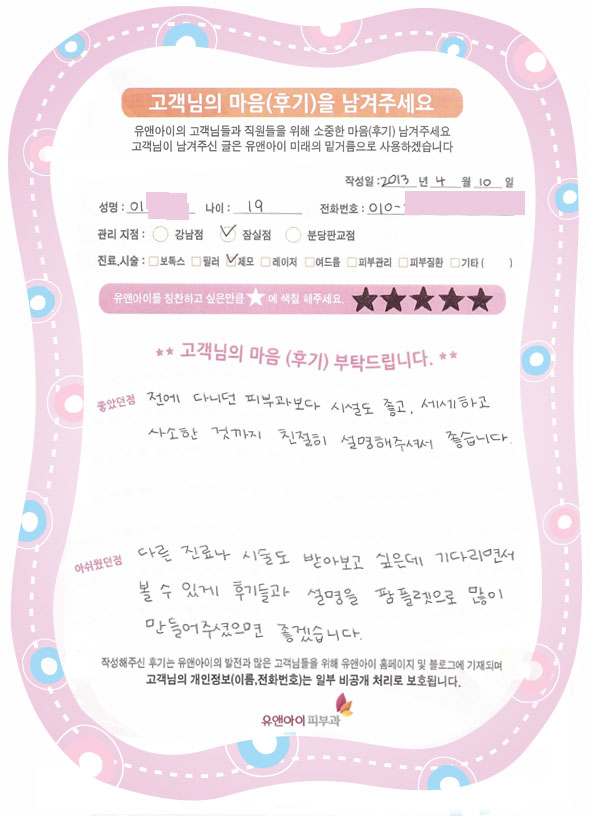 고객님의 마음(후기)을 남겨주세요
유앤아이의 고객님들과 직원들을 위해 소중한 마음(후기) 남겨주세요
고객님이 남겨주신 글은 유앤아이 미래의 밑거름으로 사용하겠습니다
작성일 : 2013 년 4 월 10 일
성명 : 이 나이 : 19 전화번호 : 010-
관리 지점 : 강남점 잠실점 분당판교점
진료,시술 : 보톡스 필러 제모 레이저 여드름 피부관리 피부질환 기타 ( )
유앤아이를 칭찬하고 싶은만큼 ★ 에 색칠 해주세요. ★★★★★
** 고객님의 마음 (후기) 부탁드립니다. **
좋았던점 전에 다니던 피부과보다 시설도 좋고, 세세하고
사소한 것까지 친절히 설명해주셔서 좋습니다.
아쉬웠던점 다른 진료나 시술도 받아보고 싶은데 기다리면서
볼 수 있게 후기들과 설명을 팜플렛으로 많이
만들어주셨으면 좋겠습니다.
작성해주신 후기는 유앤아이의 발전과 많은 고객님들을 위해 유앤아이 홈페이지 및 블로그에 기재되며
고객님의 개인정보(이름,전화번호)는 일부 비공개 처리로 보호됩니다.
유앤아이피부과